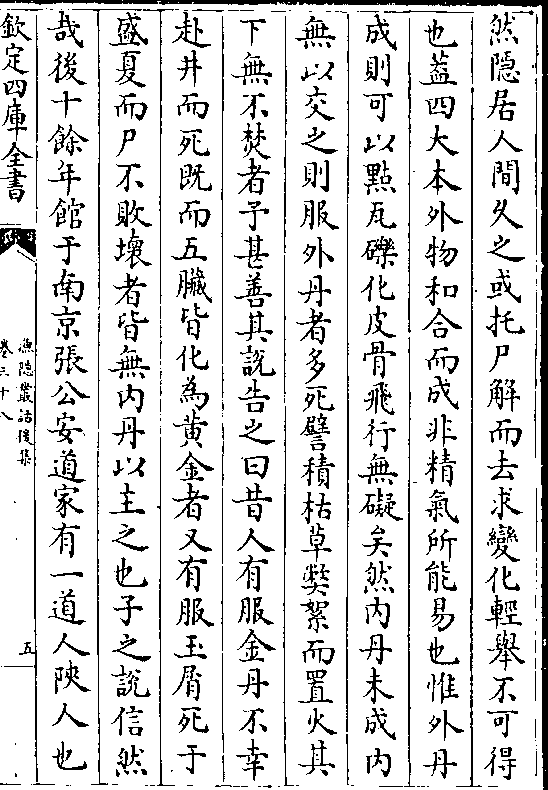 然隠居人間久之或托尸解而去求變化輕舉不可得
也葢四大本外物和合而成非精氣所能易也惟外丹
成則可以點瓦礫化皮骨飛行無礙矣然内丹未成内
無以交之則服外丹者多死譬積枯草弊絮而置火其
下無不焚者予甚善其說告之曰昔人有服金丹不幸
赴井而死既而五臟皆化為黄金者又有服玉屑死于
盛夏而尸不敗壞者皆無内丹以主之也子之說信然
哉後十餘年館于南京張公安道家有一道人陜人也
欽定四庫全書
漁隠叢話後集
卷三十八
五